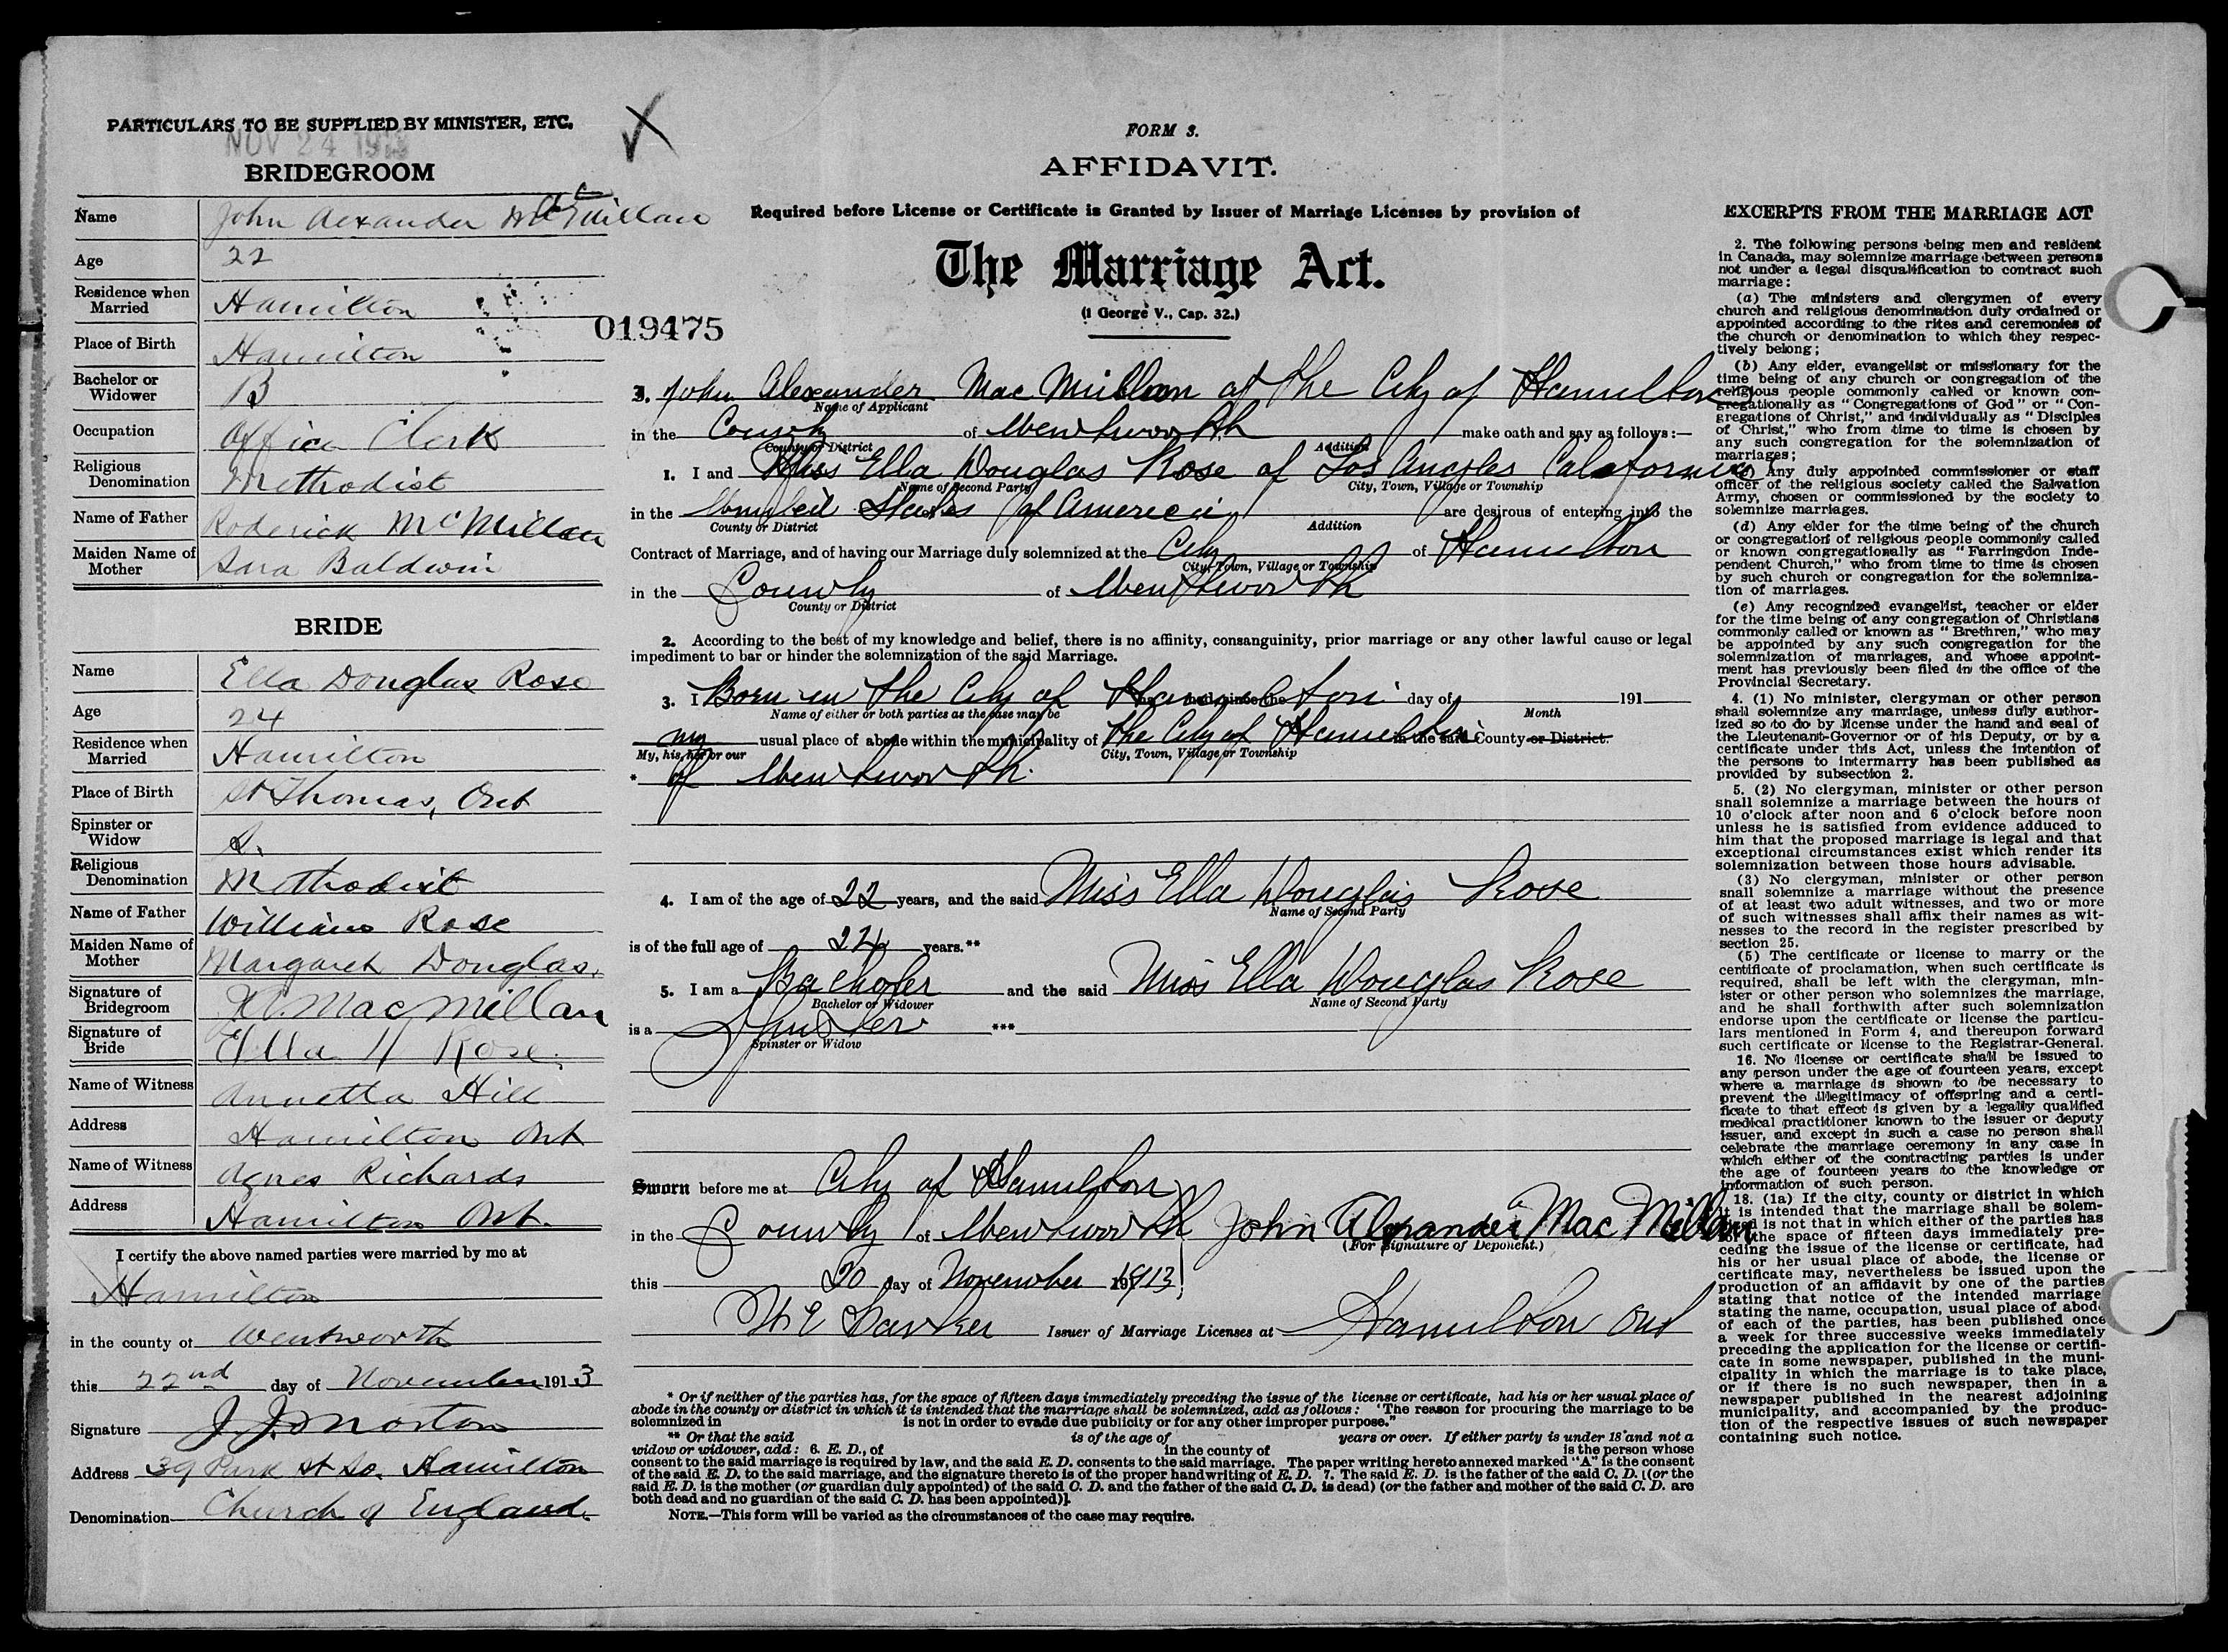 PARTICULARS TO BE SUPPLIED BY MINISTER, ETC.
NOV 24 1913
BRIDEGROOM
Name John Alexander MacMillan
Age 22
Residence when Married Hamilton
Place of Birth Hamilton
Bachelor or Widower B
Occupation Office Clerk
Religious Denomination Methodist
Name of Father Roderick McMillan
Maiden Name of Mother Sara Baldwin
BRIDE
Name Ella Douglas Rose
Age 24
Residence when Married Hamilton
Place of Birth St Thomas, Ont
Spinster or Widow S.
Religious Denomination Methodist
Name of Father William Rose
Maiden Name of Mother Margaret Douglas.
Signature of Bridegroom MacMillan
Signature of Bride Ella Rose.
Name of Witness Annetta Hill
Address Hamilton Ont
Name of Witness Agnes Richards
Address Hamilton Ont.
I certify the above named parties were married by me at
Hamilton
in the county of Wentworth
this 22nd day of November 1913
Signature J. J. Morton
Address 39 Park St So. Hamilton
Denomination Church of England.
019475
FORM 3.
AFFIDAVIT.
Required before License or Certificate is Granted by Issuer of Marriage Licenses by provision of
The Marriage Act.
(1 George V., Cap. 32.)
I, John Alexander Mac Millan of the City of Hamilton
Name of Applicant
in the County of Wentworth make oath and say as follows:—
County or District Addition
1. I and Miss Ella Douglas Rose of Los Angles California
Name of Second Party City, Town, Village or Township
in the United States of America are desirous of entering into the
County or District Addition
Contract of Marriage, and of having our Marriage duly solemnized at the City of Hamilton
City, Town, Village or Township
in the County of Wentworth
County or District
2. According to the best of my knowledge and belief, there is no affinity, consanguinity, prior marriage or any other lawful cause or legal
impediment to bar or hinder the solemnization of the said Marriage.
3. I Born in the City of Hamilton day of 191
Name of either or both parties as the case may be Month
my usual place of abode within the municipality of the City of Hamilton in the said County or District.
My, his, her or our City, Town, Village or Township
* of Wentworth.
4. I am of the age of 22 years, and the said Miss Ella Douglas Rose
Name of Second Party
is of the full age of 24 years.**
5. I am a Bachelor and the said Miss Ella Douglas Rose
Bachelor or Widower Name of Second Party
is a Spinster ***
Spinster or Widow
Sworn before me at City of Hamilton
in the County of Wentworth John Alexander Mac Millan
(For Signature of Deponent.)
this 20 day of November 1913
W E Parker Issuer of Marriage Licenses at Hamilton Ont
* Or if neither of the parties has, for the space of fifteen days immediately preceding the issue of the license or certificate, had his or her usual place of
abode in the county or district in which it is intended that the marriage shall be solemnized, add as follows: "The reason for procuring the marriage to be
solemnized in is not in order to evade due publicity or for any other improper purpose."
** Or that the said is of the age of years or over. If either party is under 18 and not a
widow or widower, add: 6. E. D., of in the county of is the person whose
consent to the said marriage is required by law, and the said E. D. consents to the said marriage. The paper writing hereto annexed marked "A" is the consent
of the said E. D. to the said marriage, and the signature thereto is of the proper handwriting of E. D. 7. The said E. D. is the father of the said C. D. [(or the
said E. D. is the mother (or guardian duly appointed) of the said C. D. and the father of the said C. D. is dead) (or the father and mother of the said C. D. are
both dead and no guardian of the said C. D. has been appointed)].
NOTE.—This form will be varied as the circumstances of the case may require.
EXCERPTS FROM THE MARRIAGE ACT
2. The following persons being men and resident
in Canada, may solemnize marriage between persons
not under a legal disqualification to contract such
marriage:
(a) The ministers and clergymen of every
church and religious denomination duly ordained or
appointed according to the rites and ceremonies of
the church or denomination to which they respec-
tively belong;
(b) Any elder, evangelist or missionary for the
time being of any church or congregation of the
religious people commonly called or known con-
gregationally as "Congregations of God" or "Con-
gregations of Christ," and individually as "Disciples
of Christ," who from time to time is chosen by
any such congregation for the solemnization of
marriages;
(c) Any duly appointed commissioner or staff
officer of the religious society called the Salvation
Army, chosen or commissioned by the society to
solemnize marriages.
(d) Any elder for the time being of the church
or congregation of religious people commonly called
or known congregationally as "Farringdon Inde-
pendent Church," who from time to time is chosen
by such church or congregation for the solemniza-
tion of marriages.
(e) Any recognized evangelist, teacher or elder
for the time being of any congregation of Christians
commonly called or known as "Brethren," who may
be appointed by any such congregation for the
solemnization of marriages, and whose appoint-
ment has previously been filed in the office of the
Provincial Secretary.
4. (1) No minister, clergyman or other person
shall solemnize any marriage, unless duly author-
ized so to do by license under the hand and seal of
the Lieutenant-Governor or of his Deputy, or by a
certificate under this Act, unless the intention of
the persons to intermarry has been published as
provided by subsection 2.
5. (2) No clergyman, minister or other person
shall solemnize a marriage between the hours of
10 o'clock after noon and 6 o'clock before noon
unless he is satisfied from evidence adduced to
him that the proposed marriage is legal and that
exceptional circumstances exist which render its
solemnization between those hours advisable.
(3) No clergyman, minister or other person
shall solemnize a marriage without the presence
of at least two adult witnesses, and two or more
of such witnesses shall affix their names as wit-
nesses to the record in the register prescribed by
section 25.
(5) The certificate or license to marry or the
certificate of proclamation, when such certificate is
required, shall be left with the clergyman, min-
ister or other person who solemnizes the marriage,
and he shall forthwith after such solemnization
endorse upon the certificate or license the particu-
lars mentioned in Form 4, and thereupon forward
such certificate or license to the Registrar-General.
16. No license or certificate shall be issued to
any person under the age of fourteen years, except
where a marriage is shown to be necessary to
prevent the illegitimacy of offspring and a certi-
ficate to that effect is given by a legally qualified
medical practitioner known to the issuer or deputy
issuer, and except in such a case no person shall
celebrate the marriage ceremony in any case in
which either of the contracting parties is under
the age of fourteen years to the knowledge or
information of such person.
18. (1a) If the city, county or district in which
it is intended that the marriage shall be solem-
nized is not that in which either of the parties has
for the space of fifteen days immediately pre-
ceding the issue of the license or certificate, had
his or her usual place of abode, the license or
certificate may, nevertheless be issued upon the
production of an affidavit by one of the parties
stating that notice of the intended marriage
stating the name, occupation, usual place of abode
of each of the parties, has been published once
a week for three successive weeks immediately
preceding the application for the license or certifi-
cate in some newspaper, published in the muni-
cipality in which the marriage is to take place,
or if there is no such newspaper, then in a
newspaper published in the nearest adjoining
municipality, and accompanied by the produc-
tion of the respective issues of such newspaper
containing such notice.